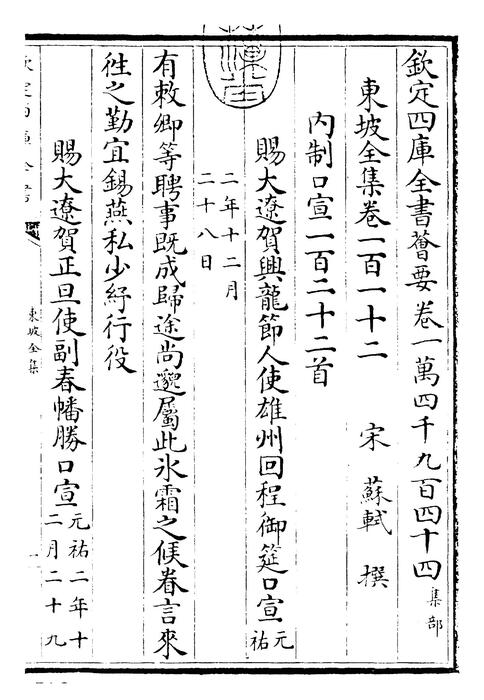 欽定四庫全書薈要卷一萬四千九百四十四 集部
東坡全集卷一百一十二 宋 蘇軾 撰
內制口宣一百二十二首
賜大遼賀興龍節人使雄州回程御筵口宣 元祐
二年十二月
二十八日
有敕卿等聘事既成歸途尚邈屬此氷霜之候眷言來
徃之勤宜錫燕私少紓行役
賜大遼賀正旦使副春幡勝口宣 元祐二年十
二月二十九
東坡全集